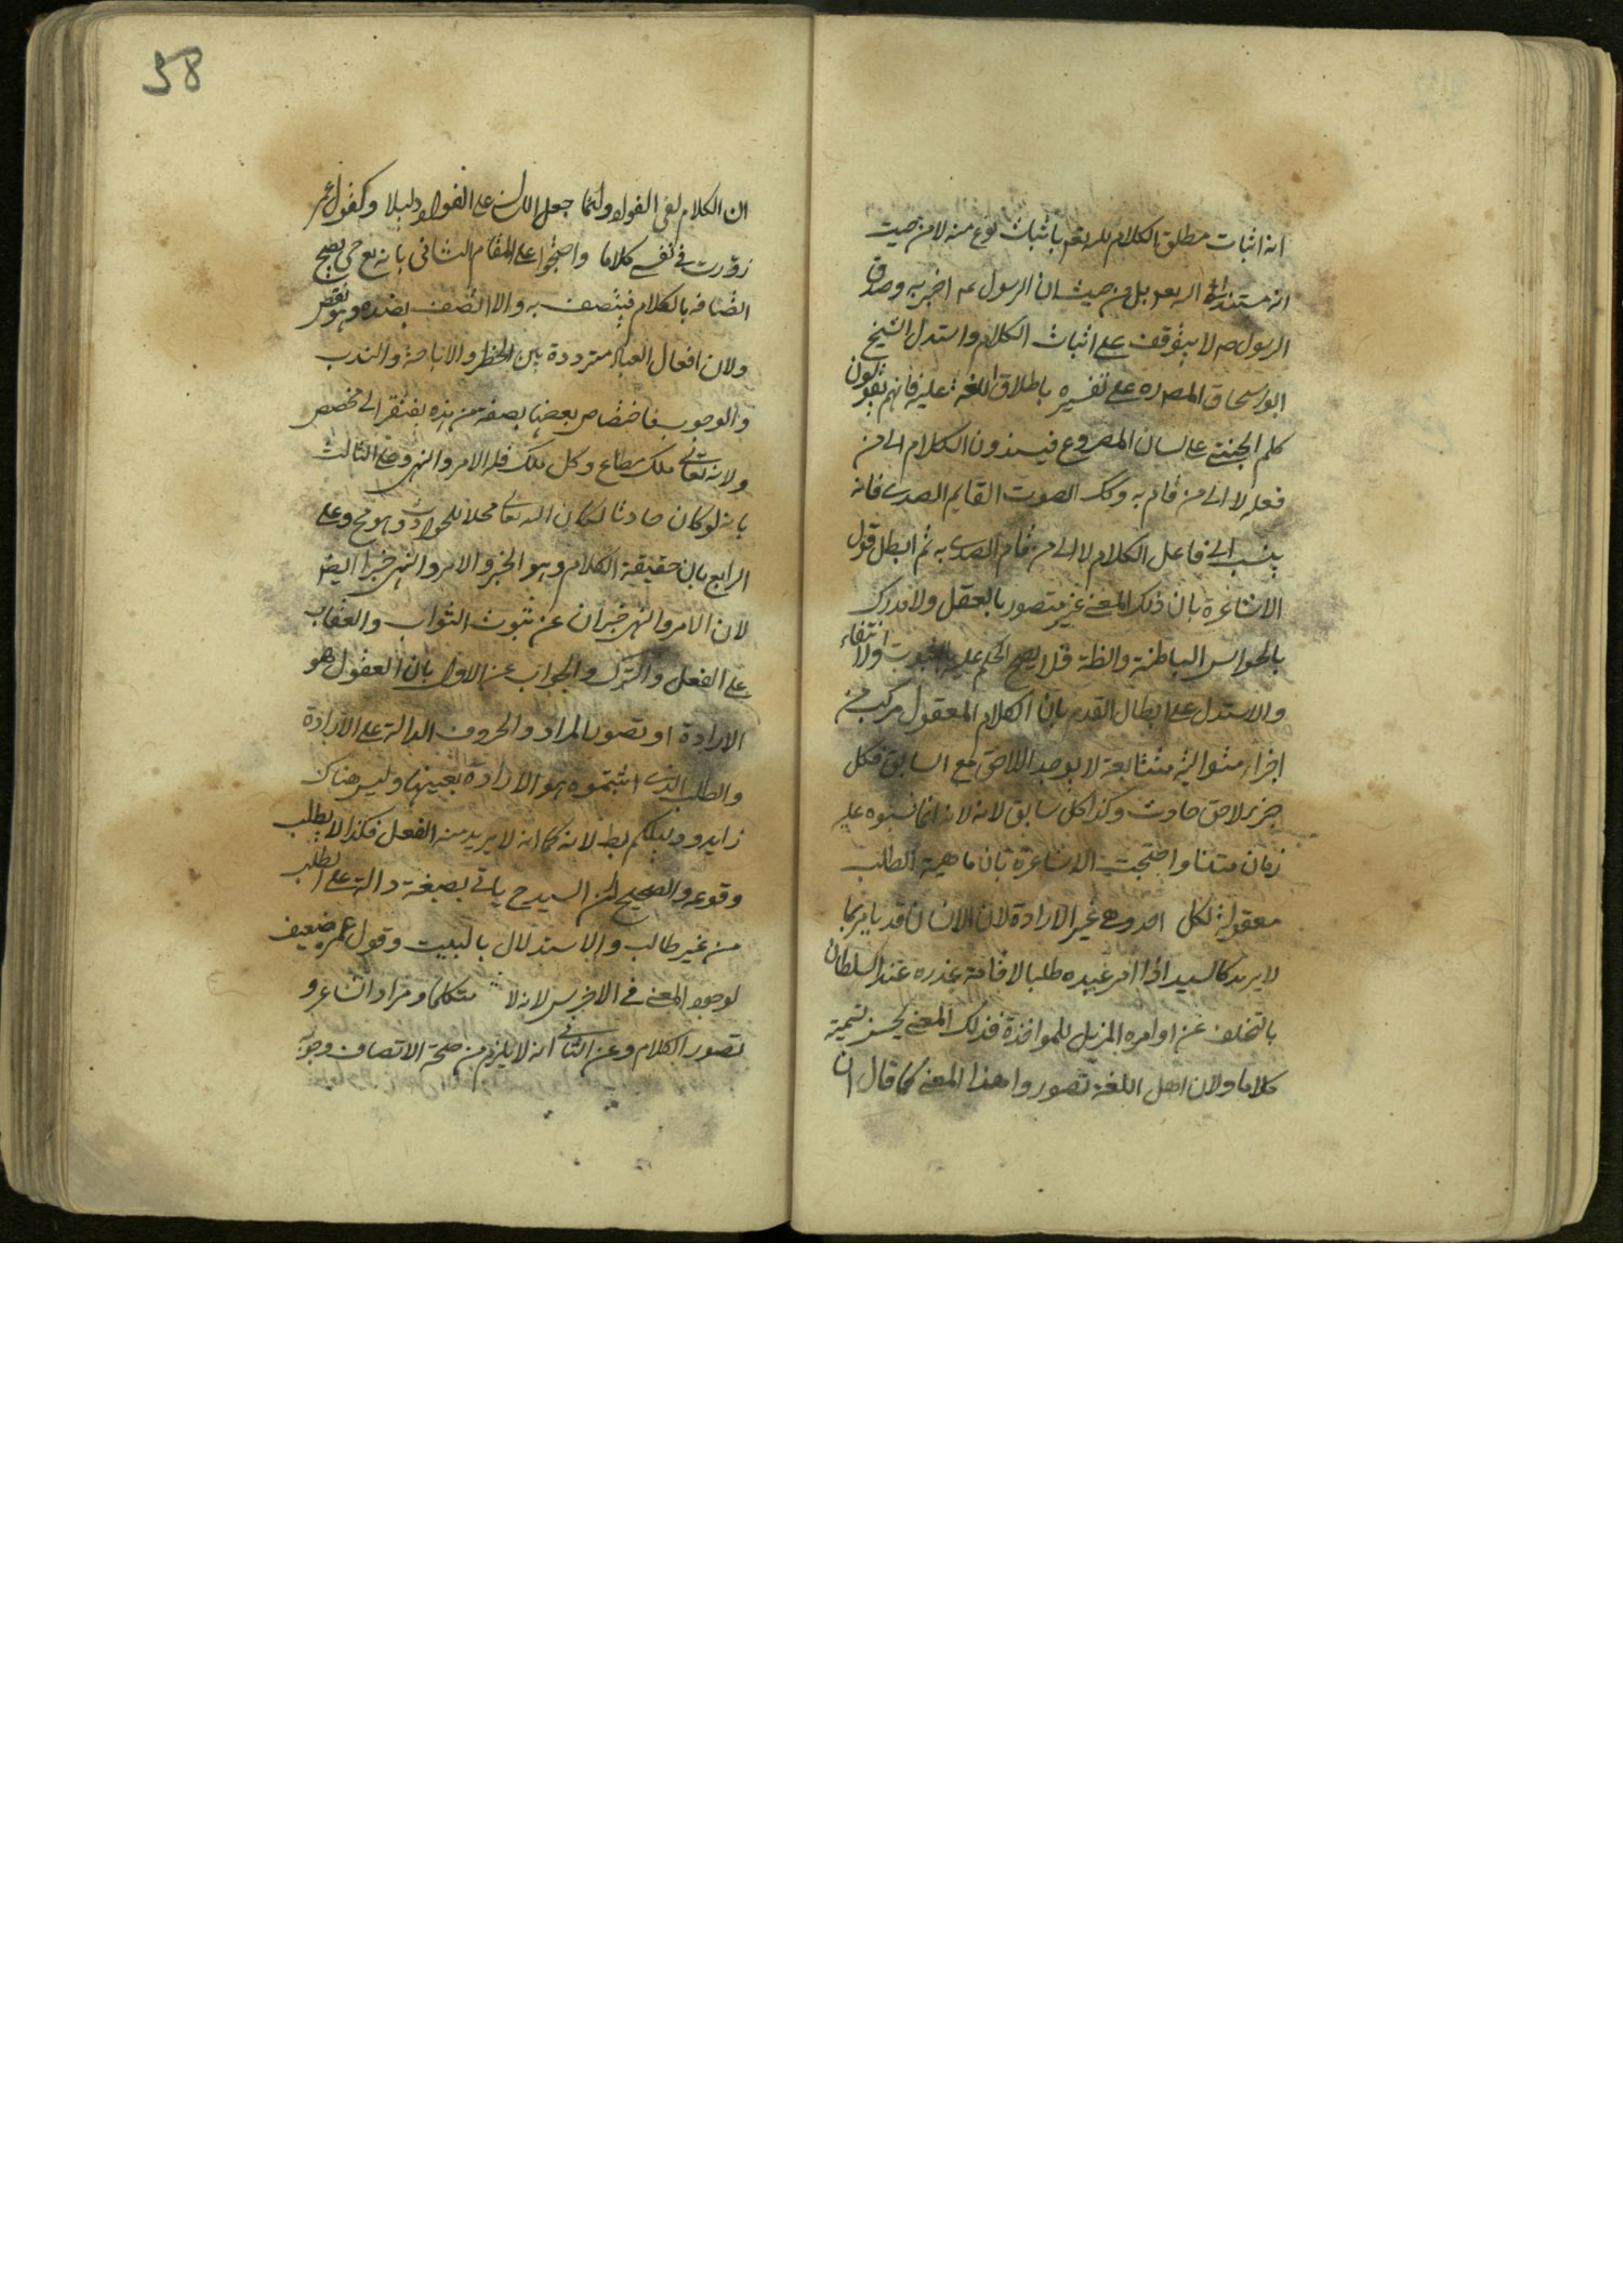 انه اثبات مطلق الكلام لله تعم باثبات نوع منه لا من حيث
انه مستند الى الله تعم بل من حيث ان الرسول عم اخبر به وصدق
الرسول صم لا يتوقف على اثبات الكلام واستدل الشيخ
ابو اسحاق المصره على تفسيره باطلاق اللغة عليه فانهم يقولون
كلم الجنتى على لسان المصروع فيسندون الكلام الى من
فعله لا الى من قام به وكك الصوت القايم الصدى فانه
ينسب الى فاعل الكلام لا الى من قام الصدى به ثم ابطل قول
الاشاعرة بان ذلك المعنى غير متصور بالعقل ولا مدرك
بالحواس الباطنة والظة فلا يصح الحكم عليه بالثبوت ولا انتفاء
والاستدل على ابطال القدم بان الكلام المعقول مركب من
اجزاء متوالية متتابعة لا يوجد اللاحق مع السابق فكل
جزء لاحق حادث وكذا كل سابق لانه لانه انما نسبوه عليه
زمان متنا واحتجت الاشاعرة بان ماهية الطلب
معقولة لكل احد وهى غير الارادة لان الانسان قد يامر بما
لا يريد كالسيد اذا امر عبده طلبا لاقامة عذره عند السلطان
بالتخلف عن اوامره المزيل للمواخذة فذلك المعنى يحسن تسمية
كلاما ولان اهل اللغة تصوروا هذا المعنى كما قال ان
58
ان الكلام لفى الفواد وانما جعل اللسان على الفواد دليلا وكقول عمر
زورت فى نفسى كلاما واحتجوا على المقام الثانى بانه تع حى يصح
اتصافه بالكلام فيتصف به والا اتصف بضده وهو نقص
ولان افعال العباد مترددة بين الحظر والاباحة والندب
والوجوب فاختصاص بعضها بصفة من هذه يفتقر الى مخصص
ولانه تعالى ملك مطاع وكل ملك فله الامر والنهى وعلى الثالث
بانه لو كان حادثا لكان الله تعالى محلا للحوادث وهو مح وعلى
الرابع بان حقيقة الكلام وهو الخبر والامر والنهى خبرا ايضا
لان الامر والنهى خبران عن ثبوت الثواب والعقاب
على الفعل والترك والجواب عن الاول بان العقول هو
الارادة او تصور المراد والحروف الدالة على الارادة
والطلب الذى اثبتموه هو الارادة بعينها وليس هناك
زايد ودليلكم بط لانه كما انه لا يريد منه الفعل فكذا لا يطلب
وقوعه والصحيح ان السيد ح ياتى بصيغة دالة على الطلب
من غير طالب والاستدلال بالبيت وقول عمر ضعيف
لوجود المعنى فى الاخرس لانه لا متكلما ومراد الشاعر و
تصور الكلام وعن الثانى انه لا يلزم من صحة الاتصاف وجوبه